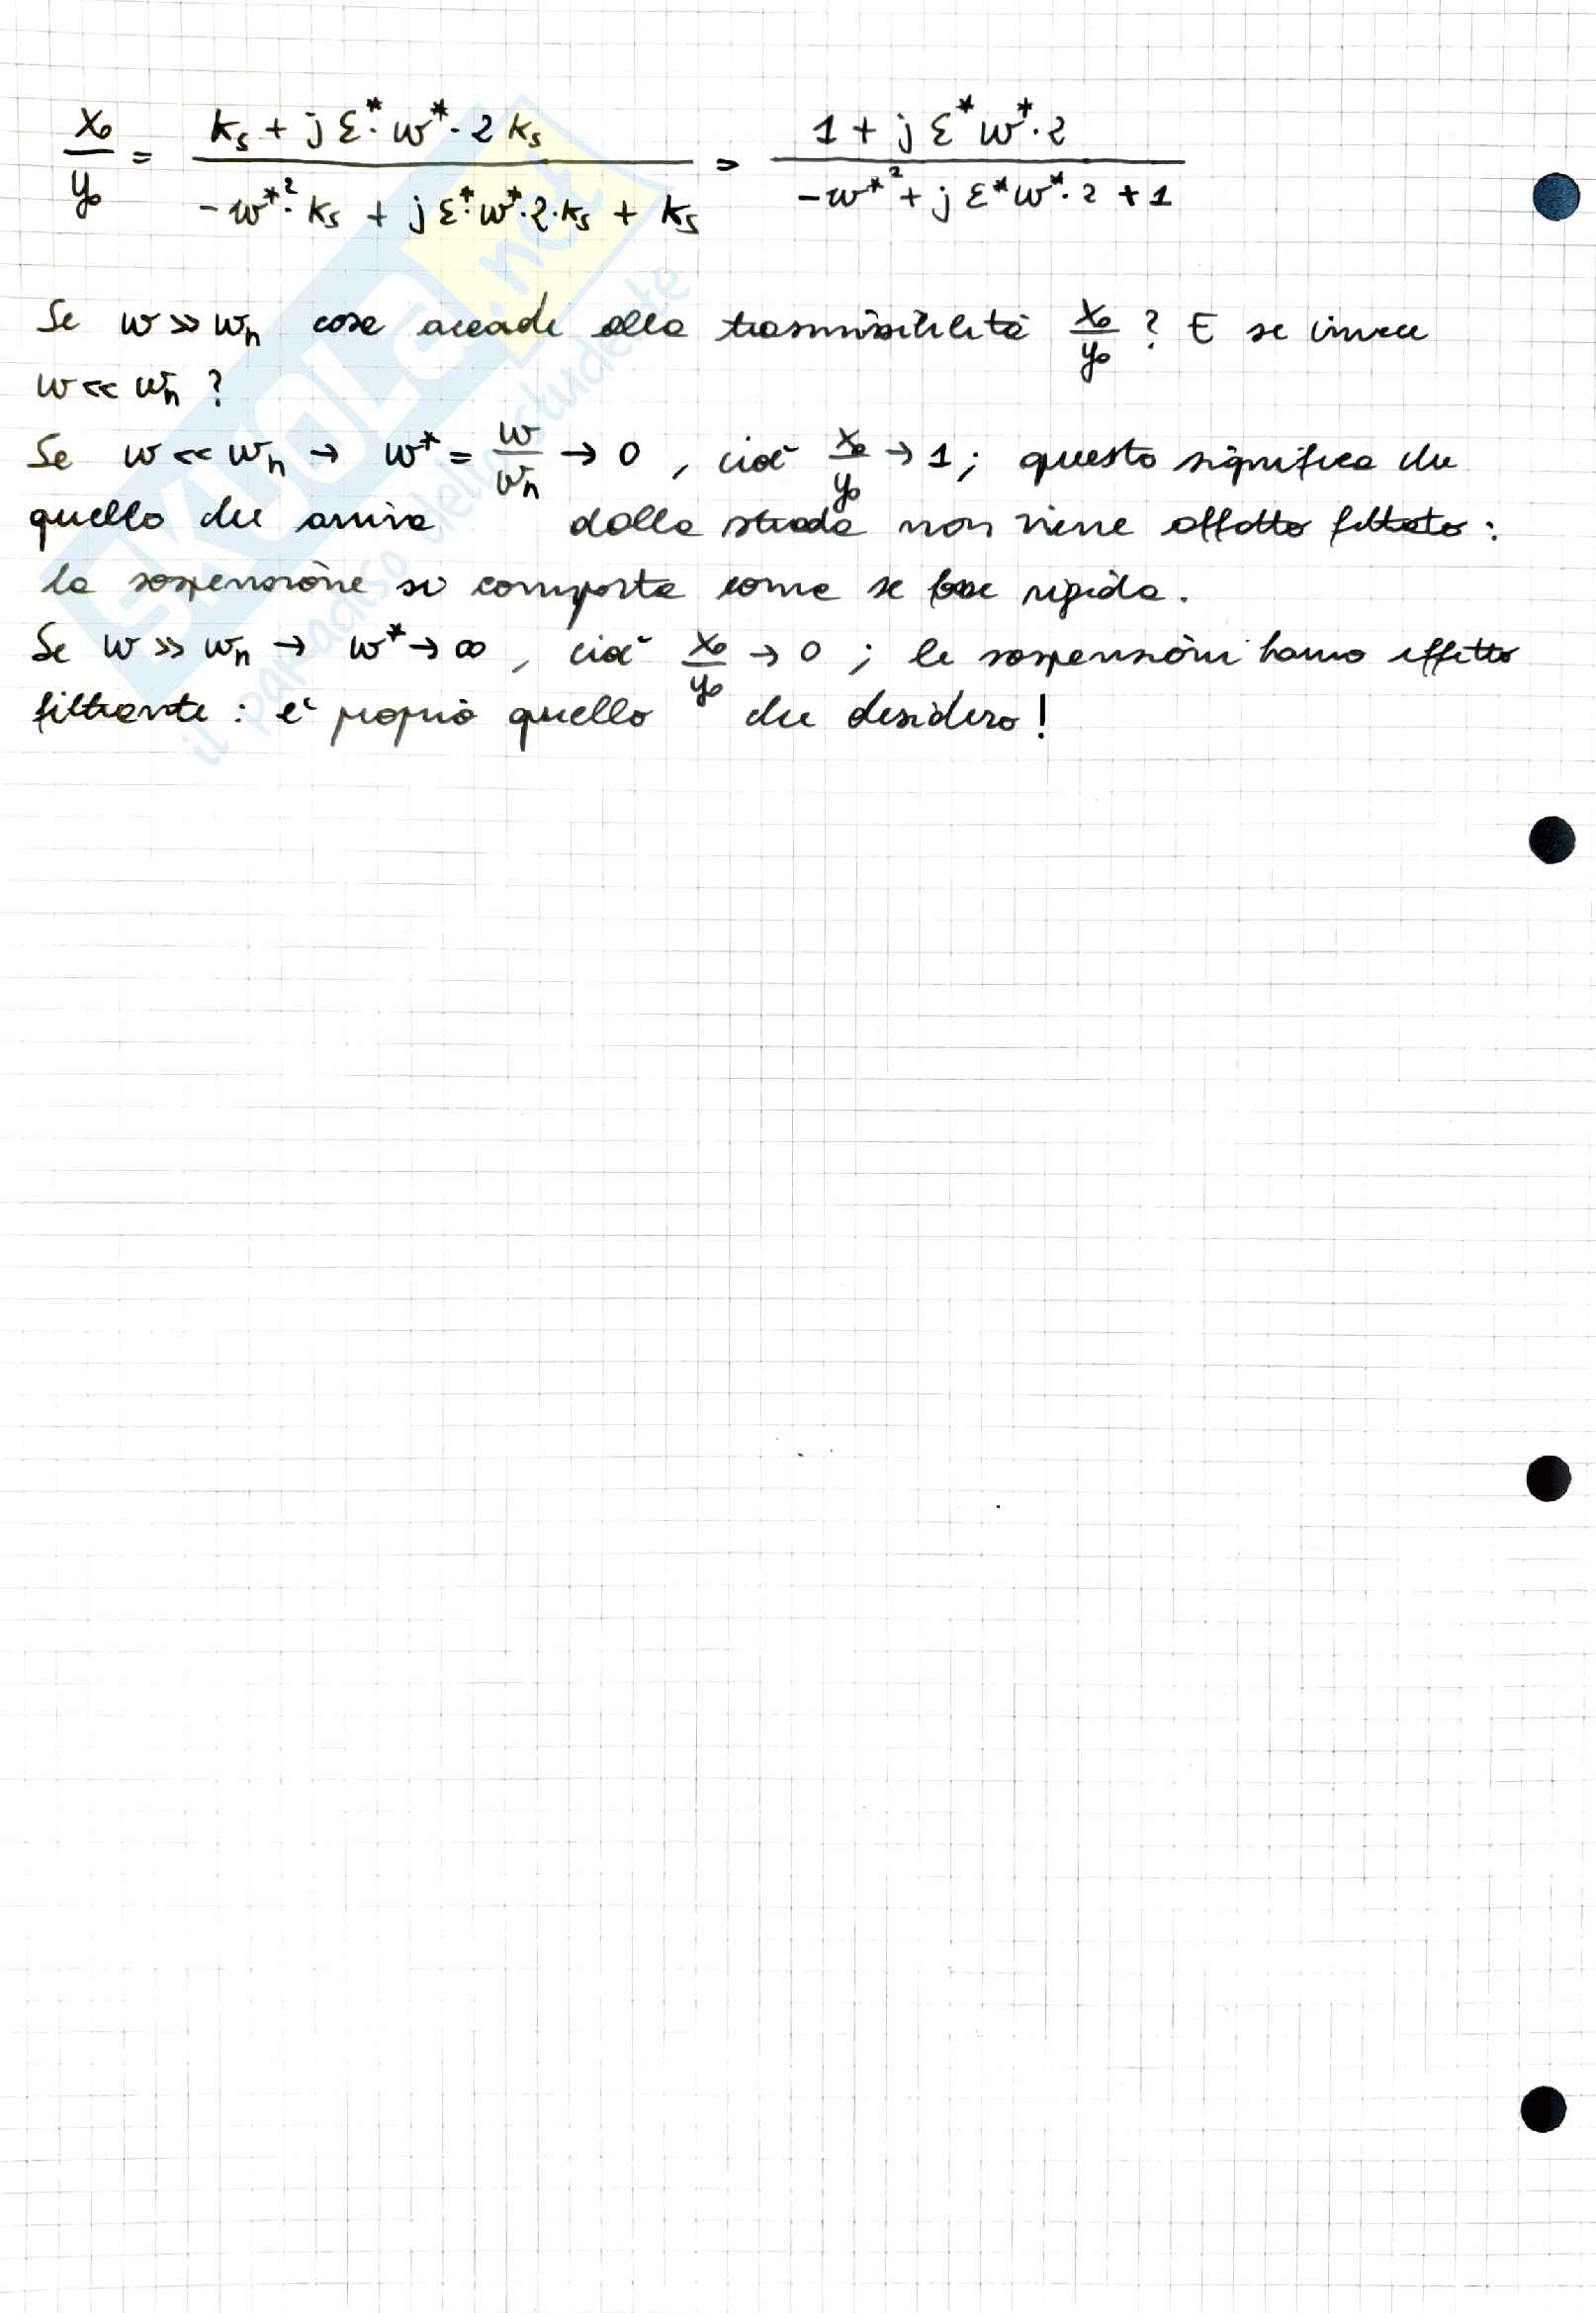 x₀/y₀ = (kₛ + j ε*· w*· 2 kₛ)/(-w*²· kₛ + j ε*· w*· 2· kₛ + kₛ) = (1 + j ε* w*· 2)/(-w*² + j ε* w*· 2 + 1)
Se w >> wₙ cosa accade alla trasmissibilità x₀/y₀ ? E se invece
w << wₙ ?
Se w << wₙ → w* = w/wₙ → 0 , cioè x₀/y₀ → 1; questo significa che
quello che arriva dalla strada non viene affatto filtrato:
la sospensione si comporta come se fosse rigida.
Se w >> wₙ → w* → ∞ , cioè x₀/y₀ → 0 ; le sospensioni hanno effetto
filtrante : è proprio quello che desidero!
SKUOLA.net
il paradiso dello studente